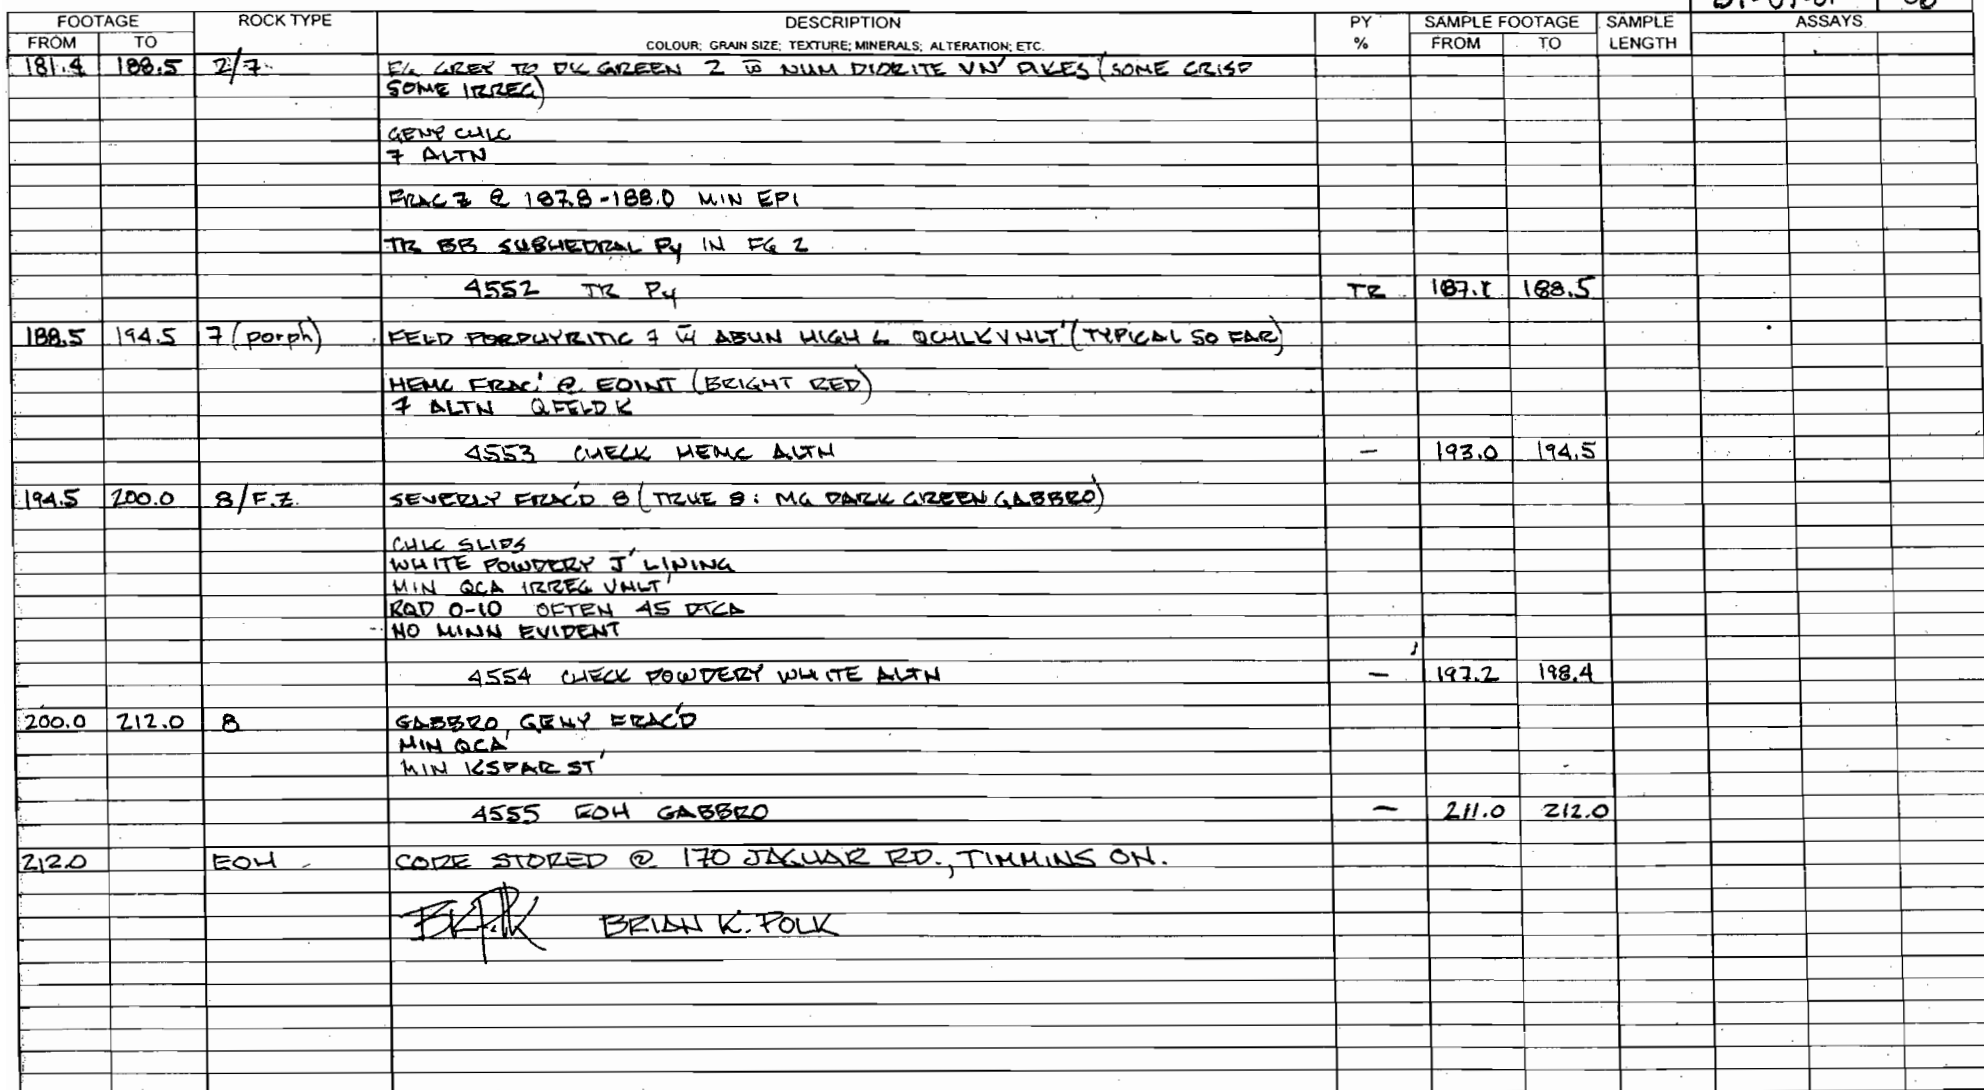 FOOTAGE ROCK TYPE DESCRIPTION PY SAMPLE FOOTAGE SAMPLE ASSAYS
FROM TO COLOUR; GRAIN SIZE; TEXTURE; MINERALS; ALTERATION; ETC. % FROM TO LENGTH
181.4 188.5 2/7 FG GREY TO DK GREEN 2 W NUM DIORITE VN' DIKES (SOME CRISP
SOME IRREG)
GENY CHLC
7 ALTN
FRAC Z @ 187.8-188.0 MIN EPI
TR BB SUBHEDRAL Py IN FG 2
4552 TR Py TR 188.5
188.5 194.5 7 (porph) FELD PORPHYRITIC 7 W ABUN HIGH L QCHLKVNLT' (TYPICAL SO FAR)
HEMC FRAC' @ EOINT (BRIGHT RED)
7 ALTN QFELDK
4553 CHECK HEMC ALTN — 193.0 194.5
194.5 200.0 8/F.Z. SEVERLY FRAC'D 8 (TRUE 8: MG DARK GREEN GABBRO)
CHLC SLIPS
WHITE POWDERY J' LINING
MIN QCA IRREG VNLT'
RQD 0-10 OFTEN 45 DTCA
NO MINN EVIDENT
4554 CHECK POWDERY WHITE ALTN — 197.2 198.4
200.0 212.0 8 GABBRO, GENY FRAC'D
MIN QCA'
MIN KSPAR ST'
4555 EOH GABBRO — 211.0 212.0
212.0 EOH CORE STORED @ 170 JAGUAR RD., TIMMINS ON.
BRIAN K. POLK